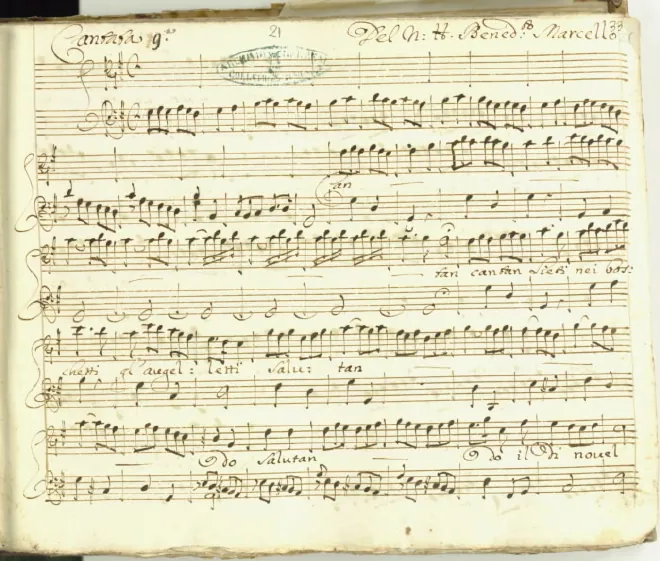 Cantata 9.ª 21 Del N: H. Bened:º Marcello 33
Can
tan cantan lieti nei bos:
chetti gl'augel: letti salu: tan
do salutan do il Di novel